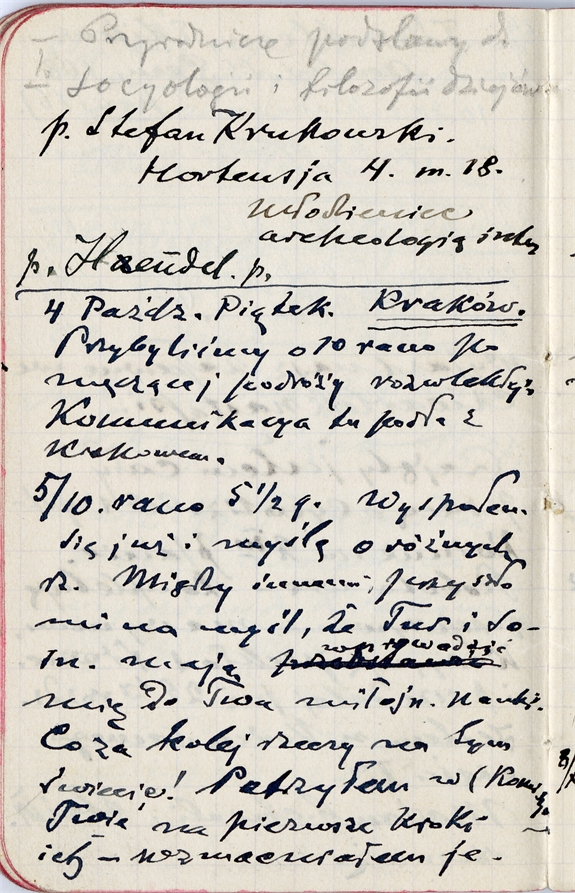 — Przyrodnicze podstawy do
I. Socyologii i filozofii dziejów
p. Stefan Krukowski.
Hortensja 4. m. 18.
Młodzieniec
archeologią
p. Haendel. p.
4 Paźdz. Piątek. Kraków.
Przybyliśmy o 10 rano po
męczącej podróży
Komunikacya tu podła z
Krakowem.
5/10. rano 5 1/2 g. Wyspałem
się już i myślę o różnych
rz. Między innemi, przyszło
mi na myśl, że Tur i So-
in. mają wprowadzić
mię do Twa miłośn. nauki.
Co za kolej rzeczy na tym
świecie! Patrzyłem w (
Twie, na pierwsze kroki
ich – wzmacniałem je.